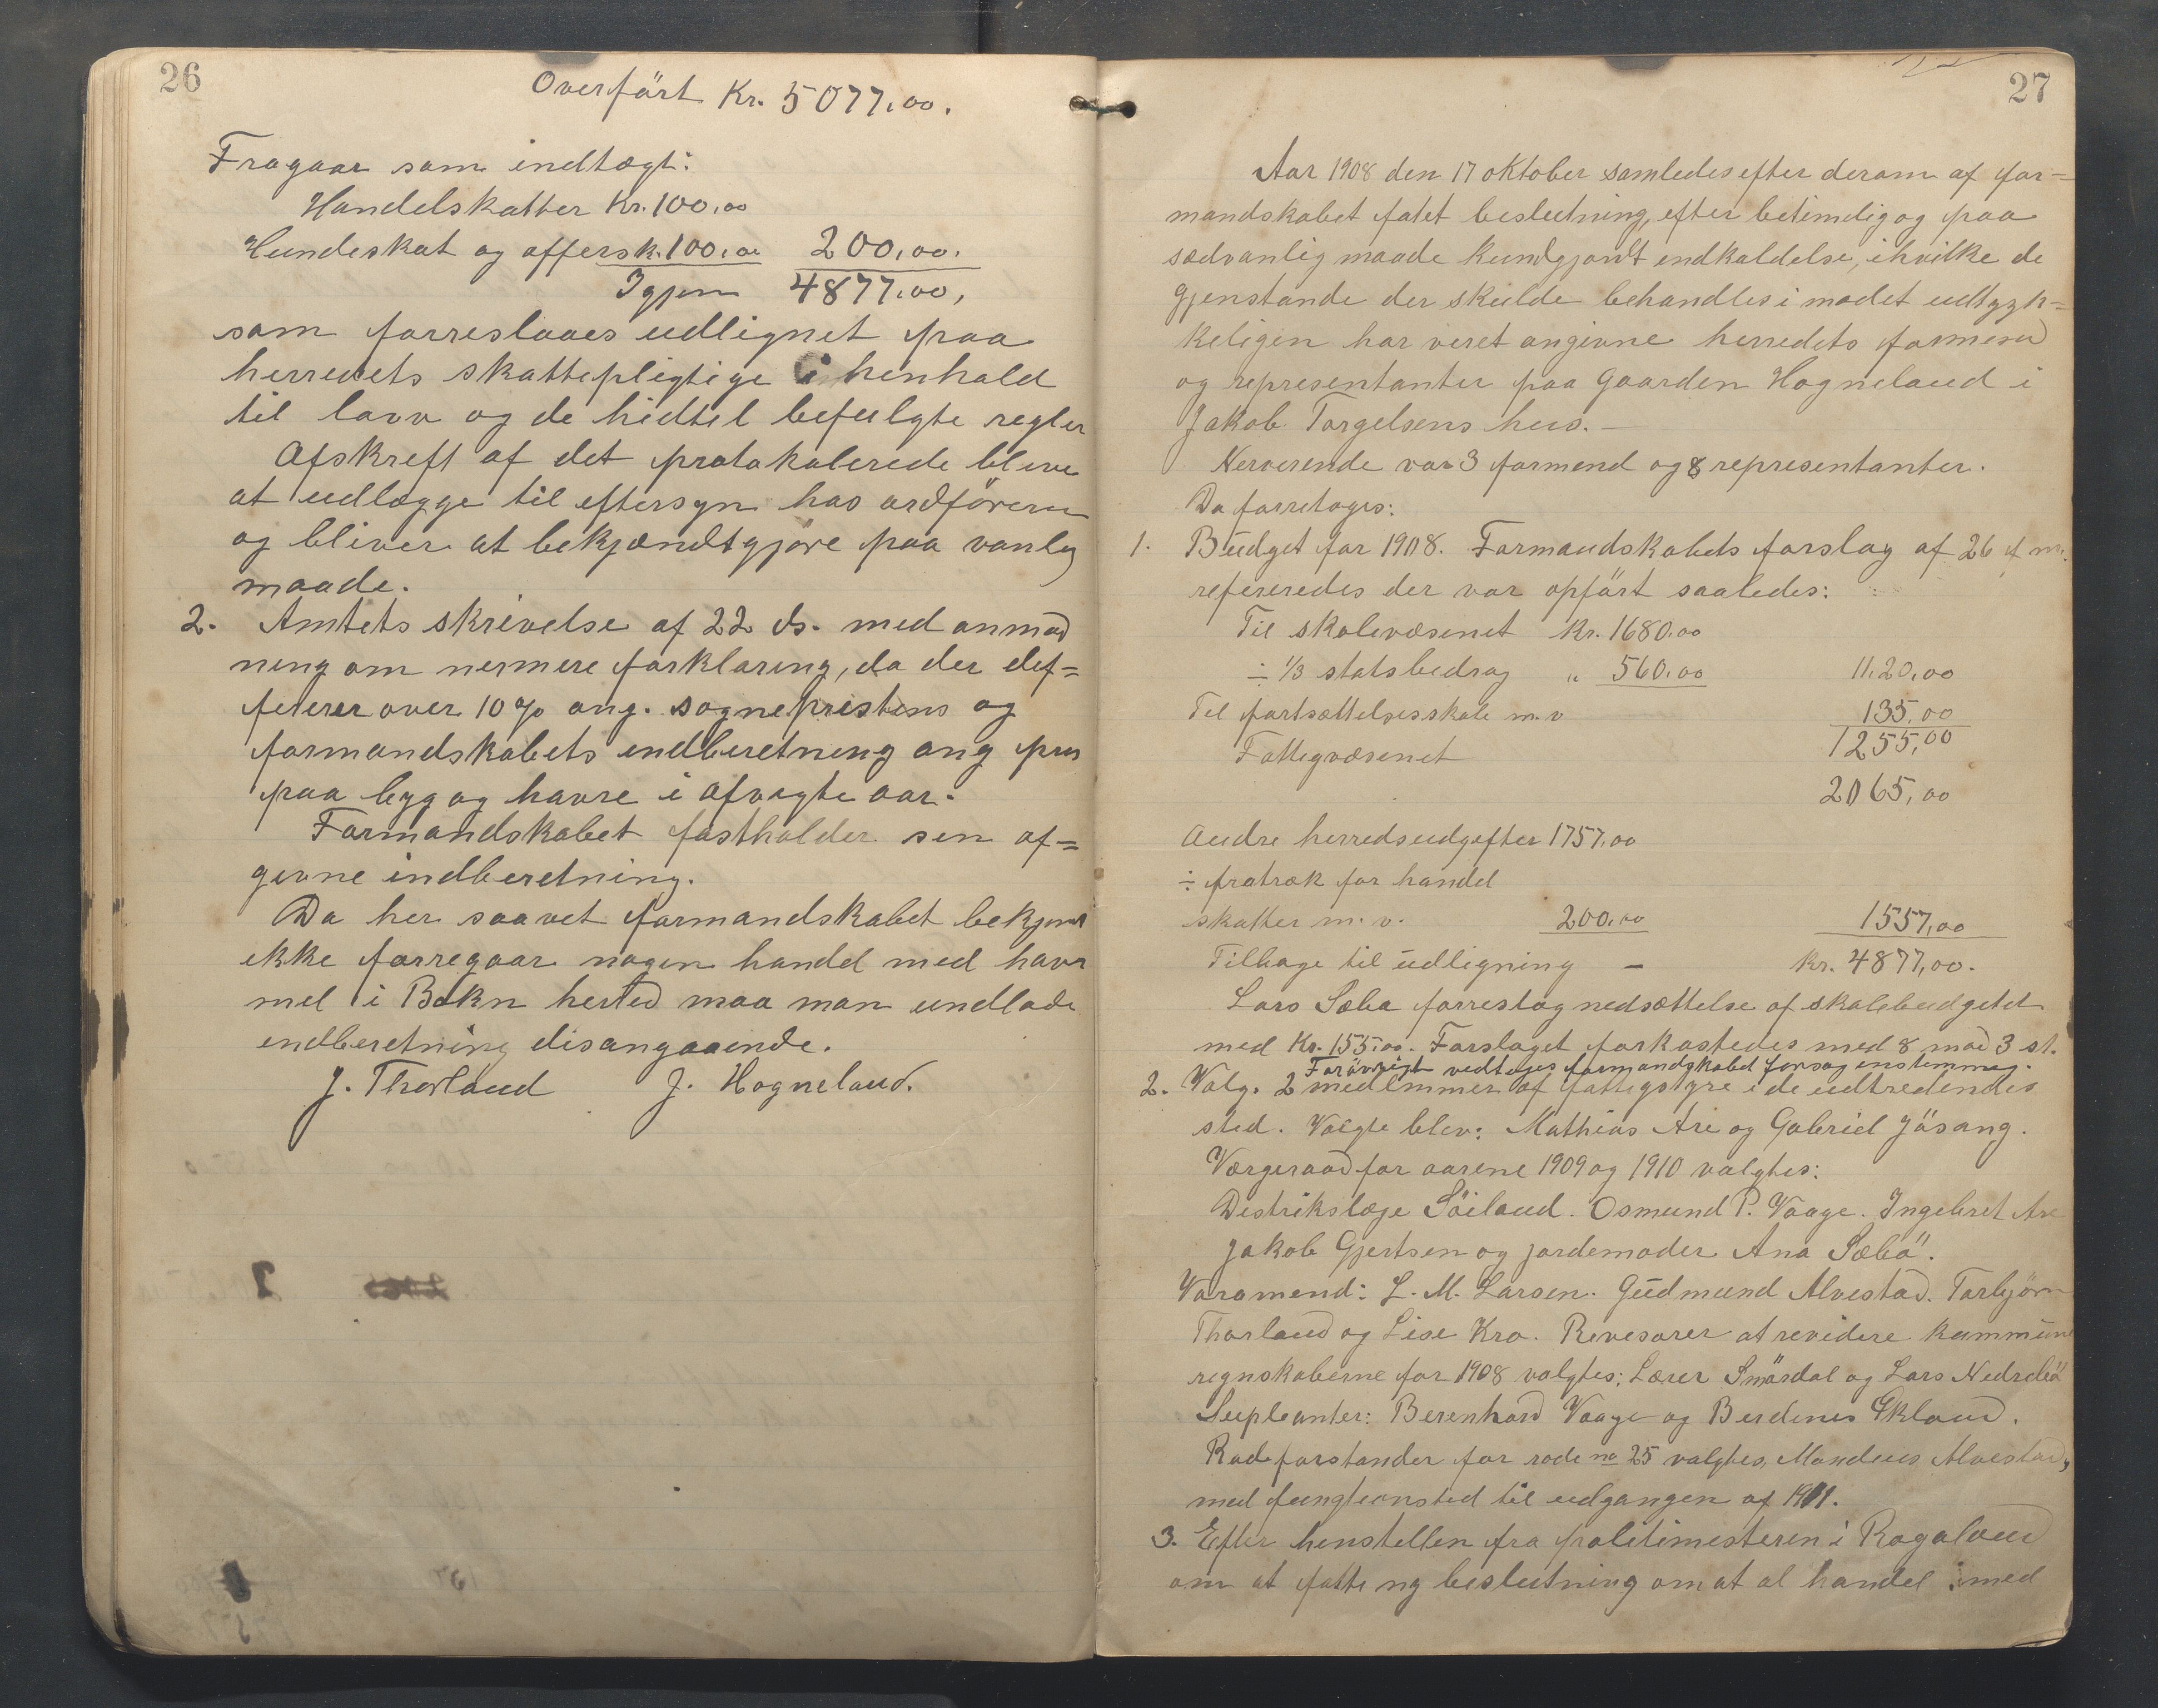 26
Overført Kr. 5077,00.
Fragaar som indtægt:
Handelskatter Kr. 100,00
Hundeskat og offersk. 100,00 200,00.
Igjen 4877,00,
som forreslaaes udlignet paa
herredets skattepligtige i henhold
til lovv og de hidtil befulgte regler
Afskreft af det protokolerede blive
at udlægge til eftersyn hos ordføreren
og bliver at bekjændtgjøre paa vanlig
maade.
2. Amtets skrivelse af 22 ds. med anmod
ning om nermere forklaring, da der def=
fererer over 10% ang. sognepristens og
formandskabets indberetning ang pris
paa byg og havre i afvigte aar.
Formandskabet fastholder sin af=
givne indberetning.
Da her saavet formandskabet bekjent
ikke forregaar nogen handel med havr
mel i Bokn hersted maa man undlade
indberetning disangaaende.
J. Thorland J. Hogneland.
27
Aar 1908 den 17 oktober samledes efter derom af for=
mandskabet fatet beslutning, efter betimelig og paa
sædvanlig maade kundgjordt indkaldelse, ihvilke de
gjenstande der skulde behandles i mødet udtryk=
keligen har veret angivne herredets formend
og representanter paa gaarden Hogneland i
Jakob Torgelsens hus. —
Nerverende var 3 formend og 8 representanter.
Da forretoges:
1. Budget for 1908. Formandskabets forslag af 26 f. m.
refereredes der var opført saaledes:
Til skolevæsenet Kr. 1680,00
÷ 1/3 statsbedrag " 560,00 11.20,00
Til fortsættelsesskole m.v 135,00
1255,00
Fattigvæsenet
2065,00
Andre herredsudgifter 1757,00
÷ fratræk for handel
skatter m. v. 200,00 1557,00
Tilbage til udligning — Kr. 4877,00.
Lars Sæbø forreslog nedsættelse af skolebudgetet
med Kr. 155,00. Forslaget forkastedes med 8 mod 3 st.
Forøvrigt vedtoges formandskabet forsag enstemmig.
2. Valg. 2 medlmmer af fattigstyre i de udtredendes
sted. Valgte blev: Mathias Are og Gabriel Jøsang.
Værgeraad for aarene 1909 og 1910 valgtes:
Destrikslæge Söiland. Osmund P. Vaage. Ingebret Are
Jakob Gjertsen og jordemoder Ana Sæbø.
Varamend: L. M. Larsen. Gudmund Alvestad. Torbjørn
Thorland og Lise Kro. Revesorer at revidere kommune
regnskaberne for 1908 valgtes: Lærer Smørdal og Lars Nedrebø
Supleanter: Berenhard Vaage og Berdines Økland.
Rodeforstander for rode no 25 valgtes, Mandius Alvestad,
med fungtionstid til udgangen af 1911.
3. Efter henstellen fra politimesteren i Rogaland
om at fatte ny beslutning om at al handel med